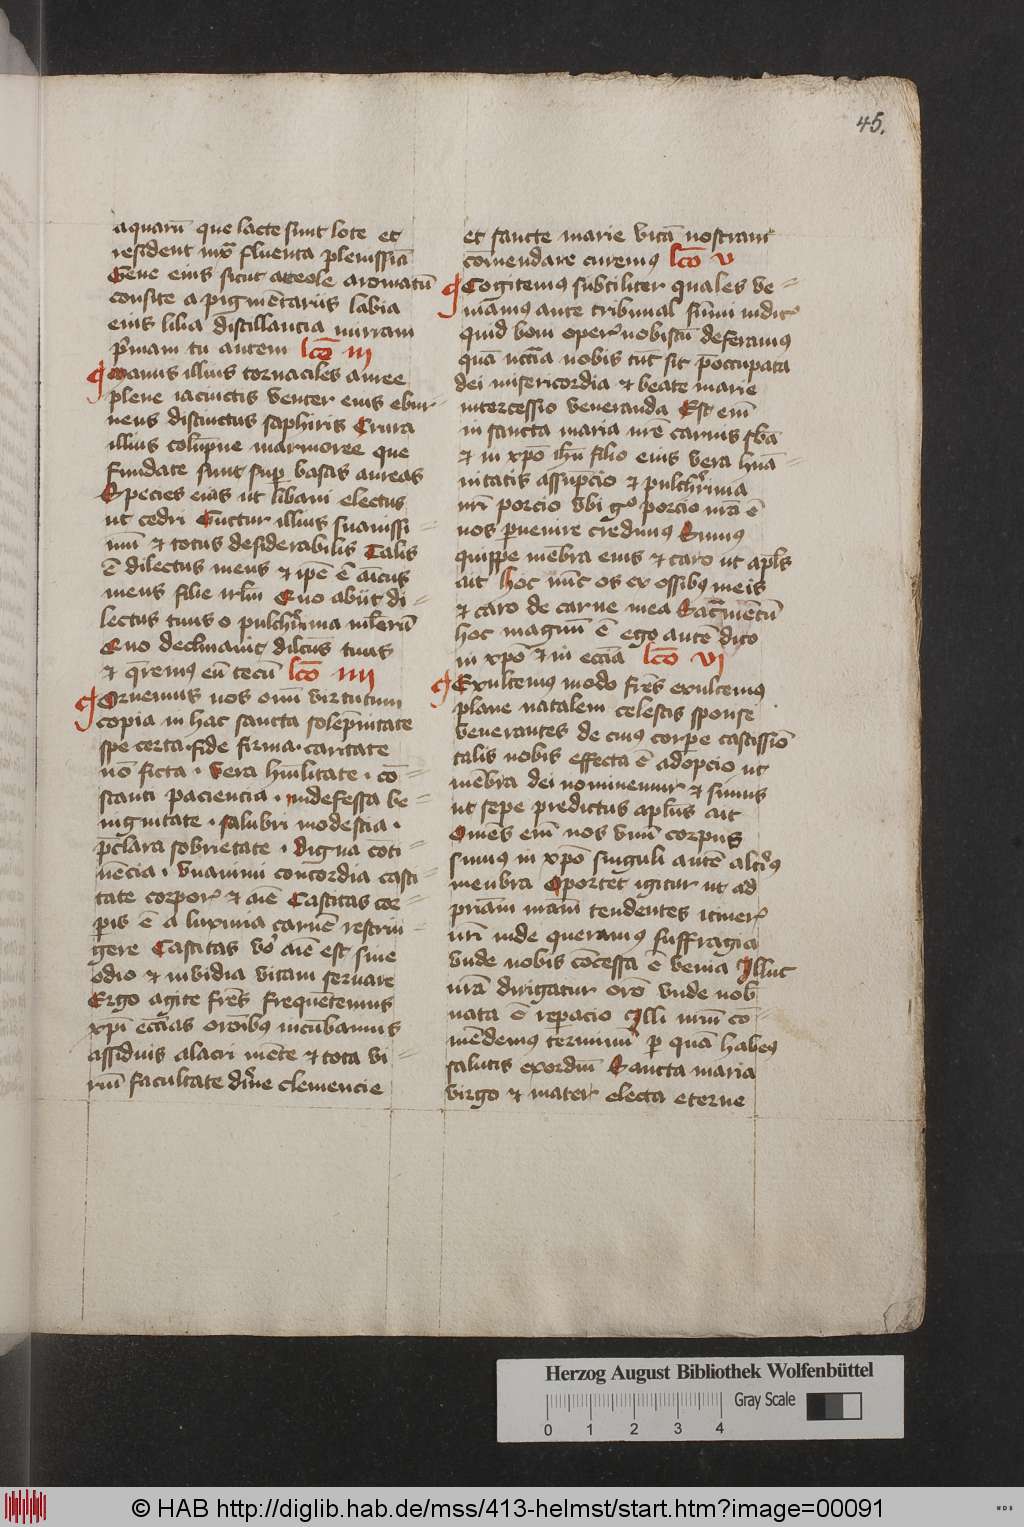 45.
aquarū que lacte sunt lote et
resident iuxͣ fluenta plenissīa
Gene eius sicut areole aromatū
consite a pigmētariis labia
eius lilia distillancia mirram
pͥmam tu autem lcō iii
Manus illius tornatiles auree
plene iacinctis venter eius ebur
neus distinctus saphiris Crura
illius colūpne marmoree que
fundate sunt suꝑ basas aureas
Species eius ut libani electus
ut cedri Guttur illius suauissi-
mū et totus desiderabilis Talis
ē dilectus meus et ipē ē aīcus
meus filie irlm̄ Quo abiit di-
lectus tuus o pulchͥrima mlierū
Quo declinauit dilcūs tuus
et q̄remꝰ eū tecū lcō iiii
Ornemus nos om̄i virtutum
copia in hac sancta solēpnitate
spe certa fide firma caritate
nō ficta vera hūilitate cō-
stanti paciencia indefessa be-
nignitate salubri modestia
p̄clara sobrietate digna cōti-
nēcia vnanimi concordia casti-
tate corporꝝ et aīe Castitas cor-
ꝑis ē a luxuria carnē restrin-
gere Castitas vͦo aīe est sine
odio et inuidia vitam seruare
Ergo agite frēs frequētemus
xp̄i ecc̄ias orōibꝰ incūbamus
assiduis alacri mēte et tota vi-
riū facultate dīne clemencie
et sancte marie vitā nostram
cōmendare curemꝰ lcō v
Cogitemꝰ subtiliter quales ve-
niamꝰ ante tribunal sūmi iudic̄
quid boni operꝝ nobiscū deferamꝰ
quā nc̄cia nobis tūc sit p̄occupata
dei misericordia et beate marie
intercessio veneranda Est enī
in sancta maria nrē carnis sbā
et in xpō ih̄u filio eius vera hūā-
nitatis assūpcio et pulchͥrima
nrī porcio vbi gͦ porcio nrā ē
nos ꝑuenire credimꝰ Sumꝰ
quippe mēbra eius et caro ut apl̄s
ait Hoc nūc os ex ossibꝰ meis
et caro de carne mea Sacͣmētū
hoc magnū ē ego autē dico
in xpō et in ecc̄ia lcō vi
Exultemꝰ modo frēs exultemꝰ
plane natalem celestis sponse
venerantes de cuiꝰ corꝑe castissīo
talis nobis effecta ē adopcio ut
mēbra dei nominemur et simus
ut sepe predictus apl̄us ait
Om̄es enī nos vnū corpus
sumꝰ in xpō singuli autē altͥus
menbra Oportet igitur ut ad
pͥam nrām tendentes itinerꝝ
nrī inde queramꝰ suffragia
vnde nobis cōcessa ē venia Illuc
nrā dirigatur orō vnde nob
nata ē reꝑacio Illi nrm̄ cō-
mēdemꝰ terminū ꝑ quā habeꝰ
salutis exordiū Sancta maria
virgo et mater electa eterne
Herzog August Bibliothek Wolfenbüttel
Gray Scale
0 1 2 3 4
© HAB http://diglib.hab.de/mss/413-helmst/start.htm?image=00091